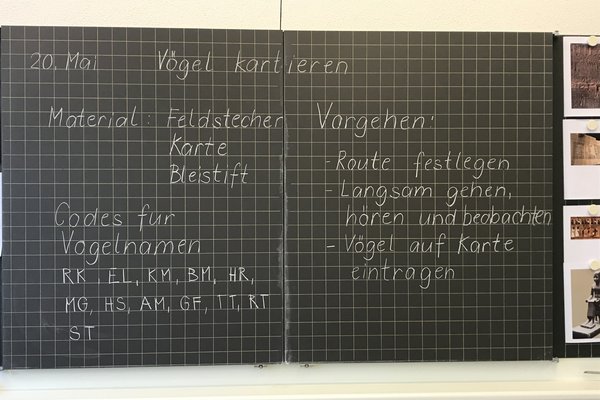 20. Mai Vögel kartieren
Material: Feldstecher
Karte
Bleistift
Codes für
Vogelnamen
RK, EL, KM, BM, HR,
MG, HS, AM, GF, TT, RT
ST
Vorgehen:
- Route festlegen
- Langsam gehen,
hören und beobachten
- Vögel auf Karte
eintragen